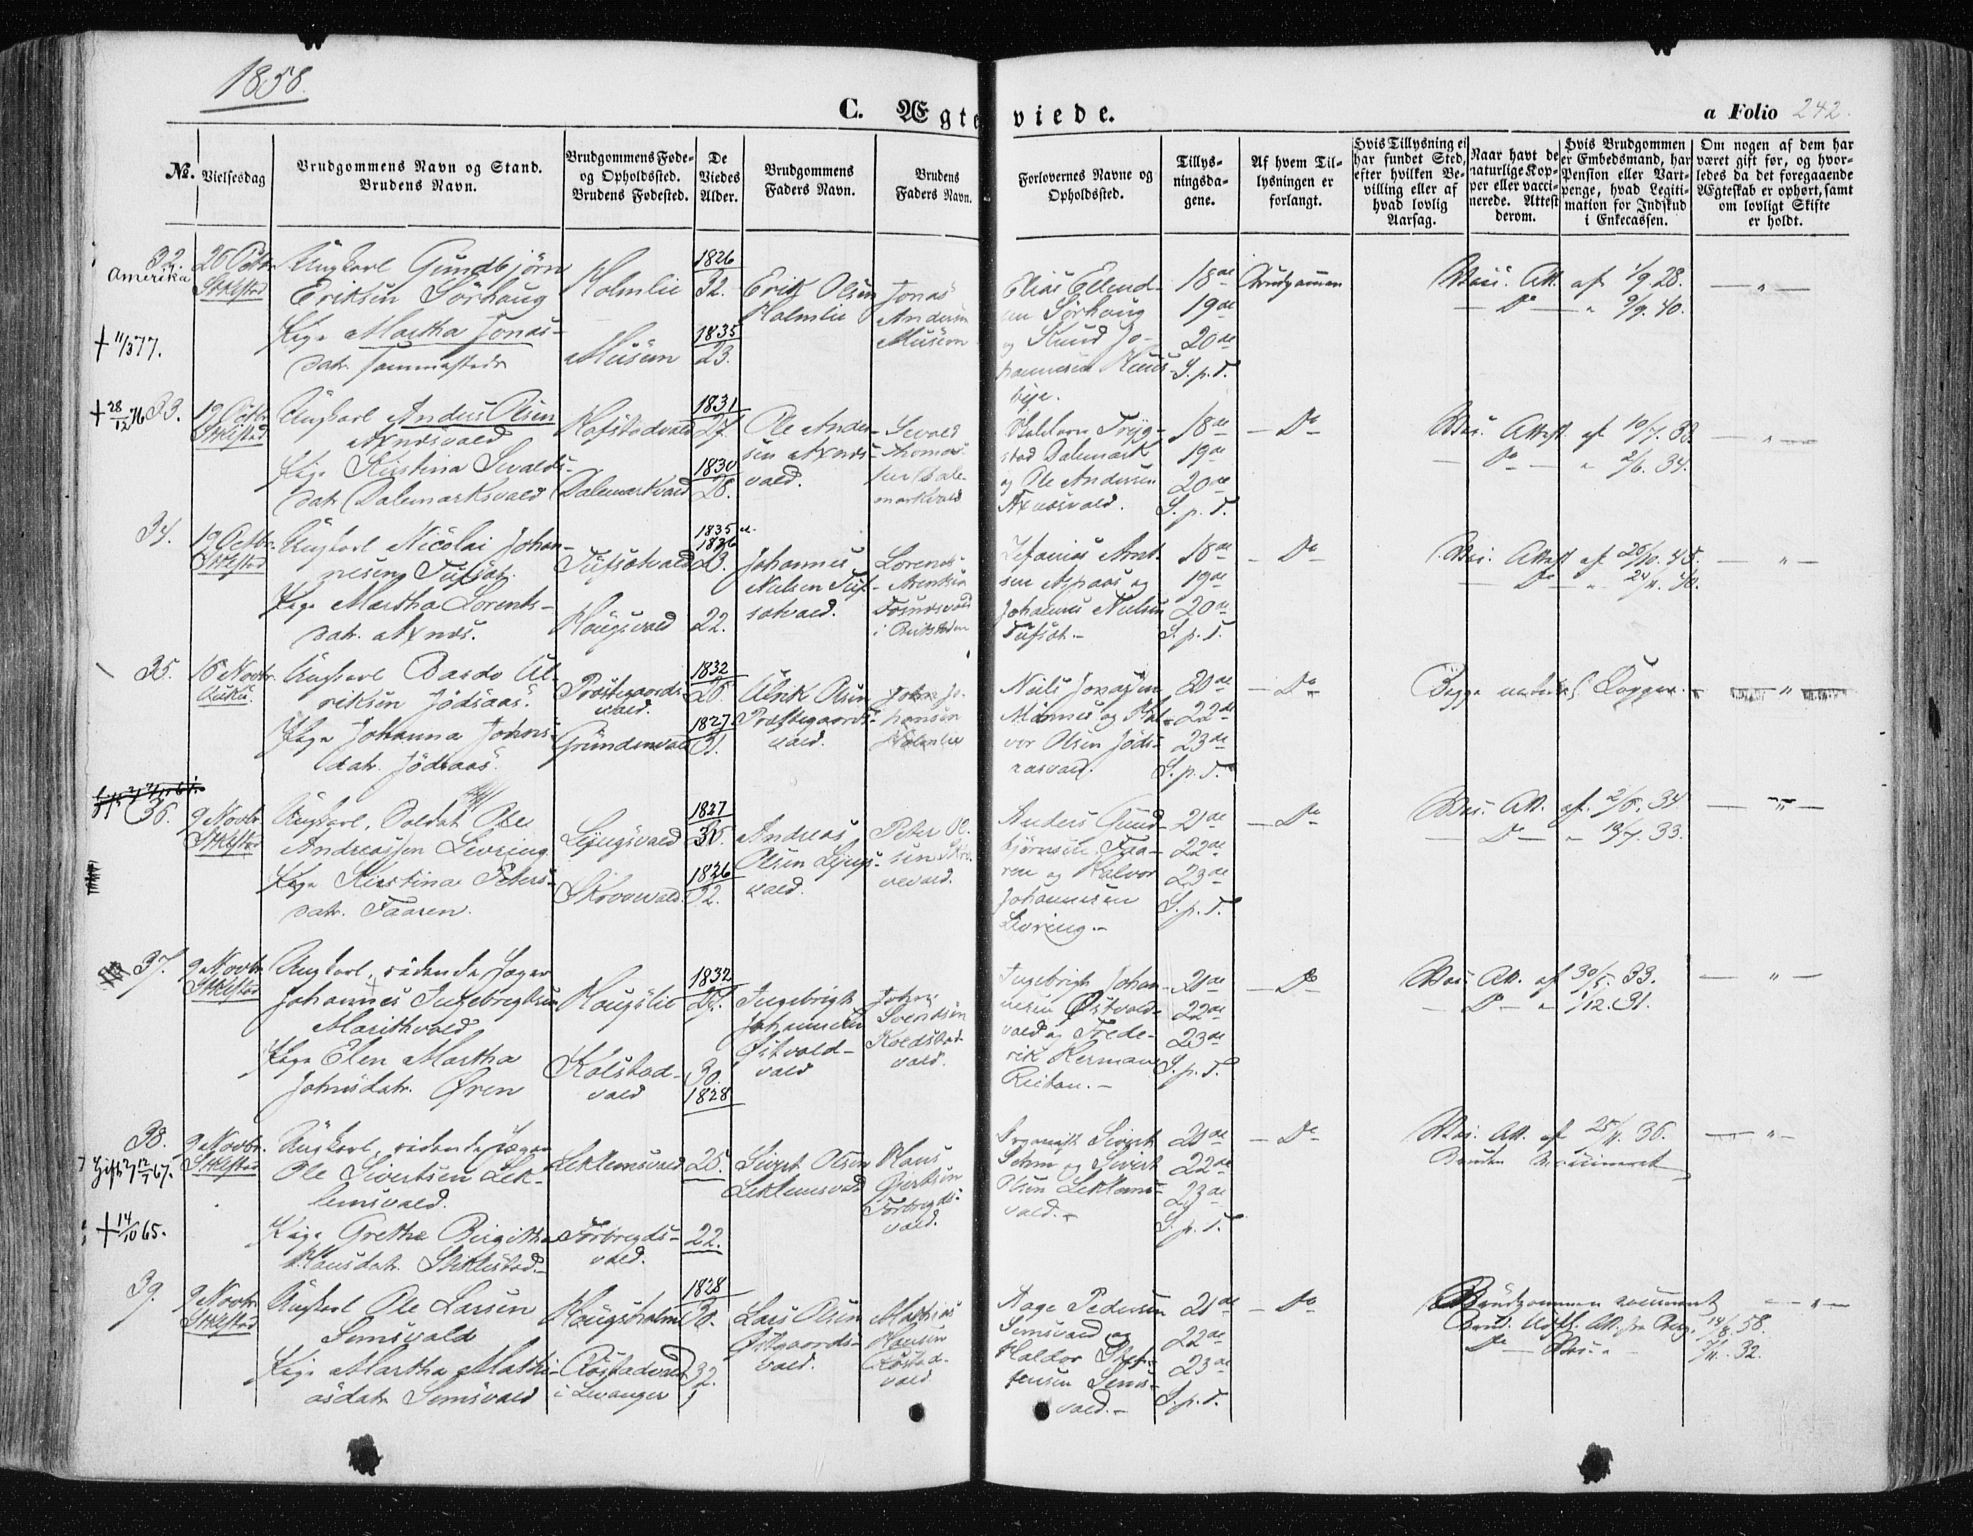 1858.
C. Ægteviede.
a Folio 242.
No.
Vielsesdag
Brudgommens Navn og Stand.
Brudens Navn.
Brudgommens Føde-
og Opholdssted.
Brudens Fødested.
De
Viedes
Alder.
Brudgommens
Faders Navn.
Brudens
Faders Navn.
Forlovernes Navne og
Opholdssted.
Tillys-
ningsda-
gene.
Af hvem Til-
lysningen er
forlangt.
Hvis Tillysning ei
har fundet Sted,
efter hvilken Be-
villing eller af
hvad lovlig
Aarsag.
Naar havt de
naturlige Kop-
per eller vacci-
nerede. Attest
derom.
Hvis Brudgommen
er Embedsmand, har
Pension eller Vart-
penge, hvad Legiti-
mation for Indskud
i Enkecassen.
Om nogen af dem har
været gift før, og hvor-
ledes da det foregaaende
Ægteskab er ophørt, samt
om lovligt Skifte
er holdt.
32.
Amerika
+ 11/3 77.
26 Octbr.
Stklestad
Ungkarl Gundbjørn
Eriksen Sörhaug
Pige Martha Jonas-
datr.
Holmlie
Musem
1826
32.
1835
23.
Erik Olsen
Holmlie
Jonas
Andersen
Musem
Elias Eilend-
sen Sørhaug
og Knud Jo-
hannesen
18de
19de
20de
S. p. T.
Brudgommen
Vac. Att. af 1/9 28.
— Do — " 9/9. 40.
— " —
+ 28/12 76 33.
19 Octbr.
Stklestad
Ungkarl Andreas Olsen
Axnæsvald
Pige Kirstina Sevalds-
datr. Dalemarksvald
Hofstadvald
Dalemarkvald
1831
27.
1830
28.
Ole Ander-
sen Axnæs-
vald.
Sevald
Thomas-
sen Dale-
markvald
Haldorn Tryg-
stad Dalemark
og Ole Andersen
Axnæsvald.
18de
19de
20de
S. p. T.
— Do —
Vac. Attest af 10/7. 33
— Do — " 2/6. 34.
— " —
34.
19 Octbr.
Stklestad
Ungkarl Nicolai Johan-
nesen Tufsöt.
Pige Martha Lorents-
datr. Axnæs.
Tufsötvald
Hougsvald
1835
1836
23.
22.
Johannes
Nielsen Tuf-
sötvald.
Lorents
Arentsen
Zefanias Arnt
sen Aspaas og
Johannes Nielsen
Tufsöt. —
18de
19de
20de
S. p. T.
— Do —
Vac. Attest af 26/10. 45.
— Do — " 24/11. 40.
— " —
35.
16 Novbr.
Ungkarl Bardo Ul-
riksen Jödsaas.
Pige Johanna Johns-
datr. Jödsaas.
Præstegaards-
vald.
Gründenvald
1832
26
1827.
31.
Ulrik Olsen
Præstegaards-
vald.
John Jo-
hansen
Holmlie
Niels Jonassen
Mönnes og Hal-
vor Olsen Jöds-
aasvald.
20de
22de
23de
S. p. T.
— Do —
36.
9 Novbr.
Stklestad
Ungkarl, Soldat Ole
Andreassen Levring
Pige Kirstina Peters-
datr. Faaren.
Ljugsvald
Skrovevald
1827
30.
1826
32.
Andreas
Olsen Ljugs-
vald.
Peter Ol-
sen Skro-
vevald.
Anders Gund-
bjørnsen Faa-
ren og Halvor
Johannesen
Levring. —
21de
22de
23de
S. p. T.
— Do —
Vac. Att. af. 2/6. 34
— Do — " 13/7. 33.
— " —
37.
9 Novbr.
Stklestad
Ungkarl, ridende Jæger
Johannes Ingebrigtsen
Marithvald
Pige Elen Martha
Johnsdatr. Øren
Hougslie
Kolstad-
vald
1832
27.
30.
1828
Ingebrigt
Johannesen
Østvold-
vald
John
Svendsen
Koldstad
vald.
Ingebrigt Johan-
nesen Østvold-
vald og Frede-
rik Herman
Reitan. —
21de
22de
23de
S. p. T.
— Do
Vac. Att. af 30/5. 33.
— Do — " 1/12. 31.
— " —
38.
+ 14/10 65.
9 Novbr.
Stklestad
Ungkarl, ridende Jæger
Ole Sivertsen Lek-
lemsvald.
Pige Grethe Birgitha
Hansdatr. Stiklestad.
Leklemsvald
Forbregds-
vald.
25.
22.
Sivert Olsen
Leklemsvald
Hans
Gjertsen
Forbregds-
vald.
Organist Sivert
Sehm og Sivert
Olsen Leklems-
vald. —
21de
22de
23de
S. p. T.
— Do —
Vac. Att. af 25/11. 36.
Bruden Vaccineret
— " —
39.
9 Novbr.
Stklestad
Ungkarl Ole Larsen
Semsvald
Pige Martha Mathi-
asdatr. Semsvald
Hougsholm
Röstadvald
i Levanger
1828
30.
32.
Lars Olsen
Østgaards-
vald.
Mathias
Hansen
Röstad-
vald
Aage Pedersen
Semsvald og
Haldor Stef-
fensen Sems-
vald. —
21de
22de
23de
S. p. T.
— Do —
Brudgommen vaccineret
— " —